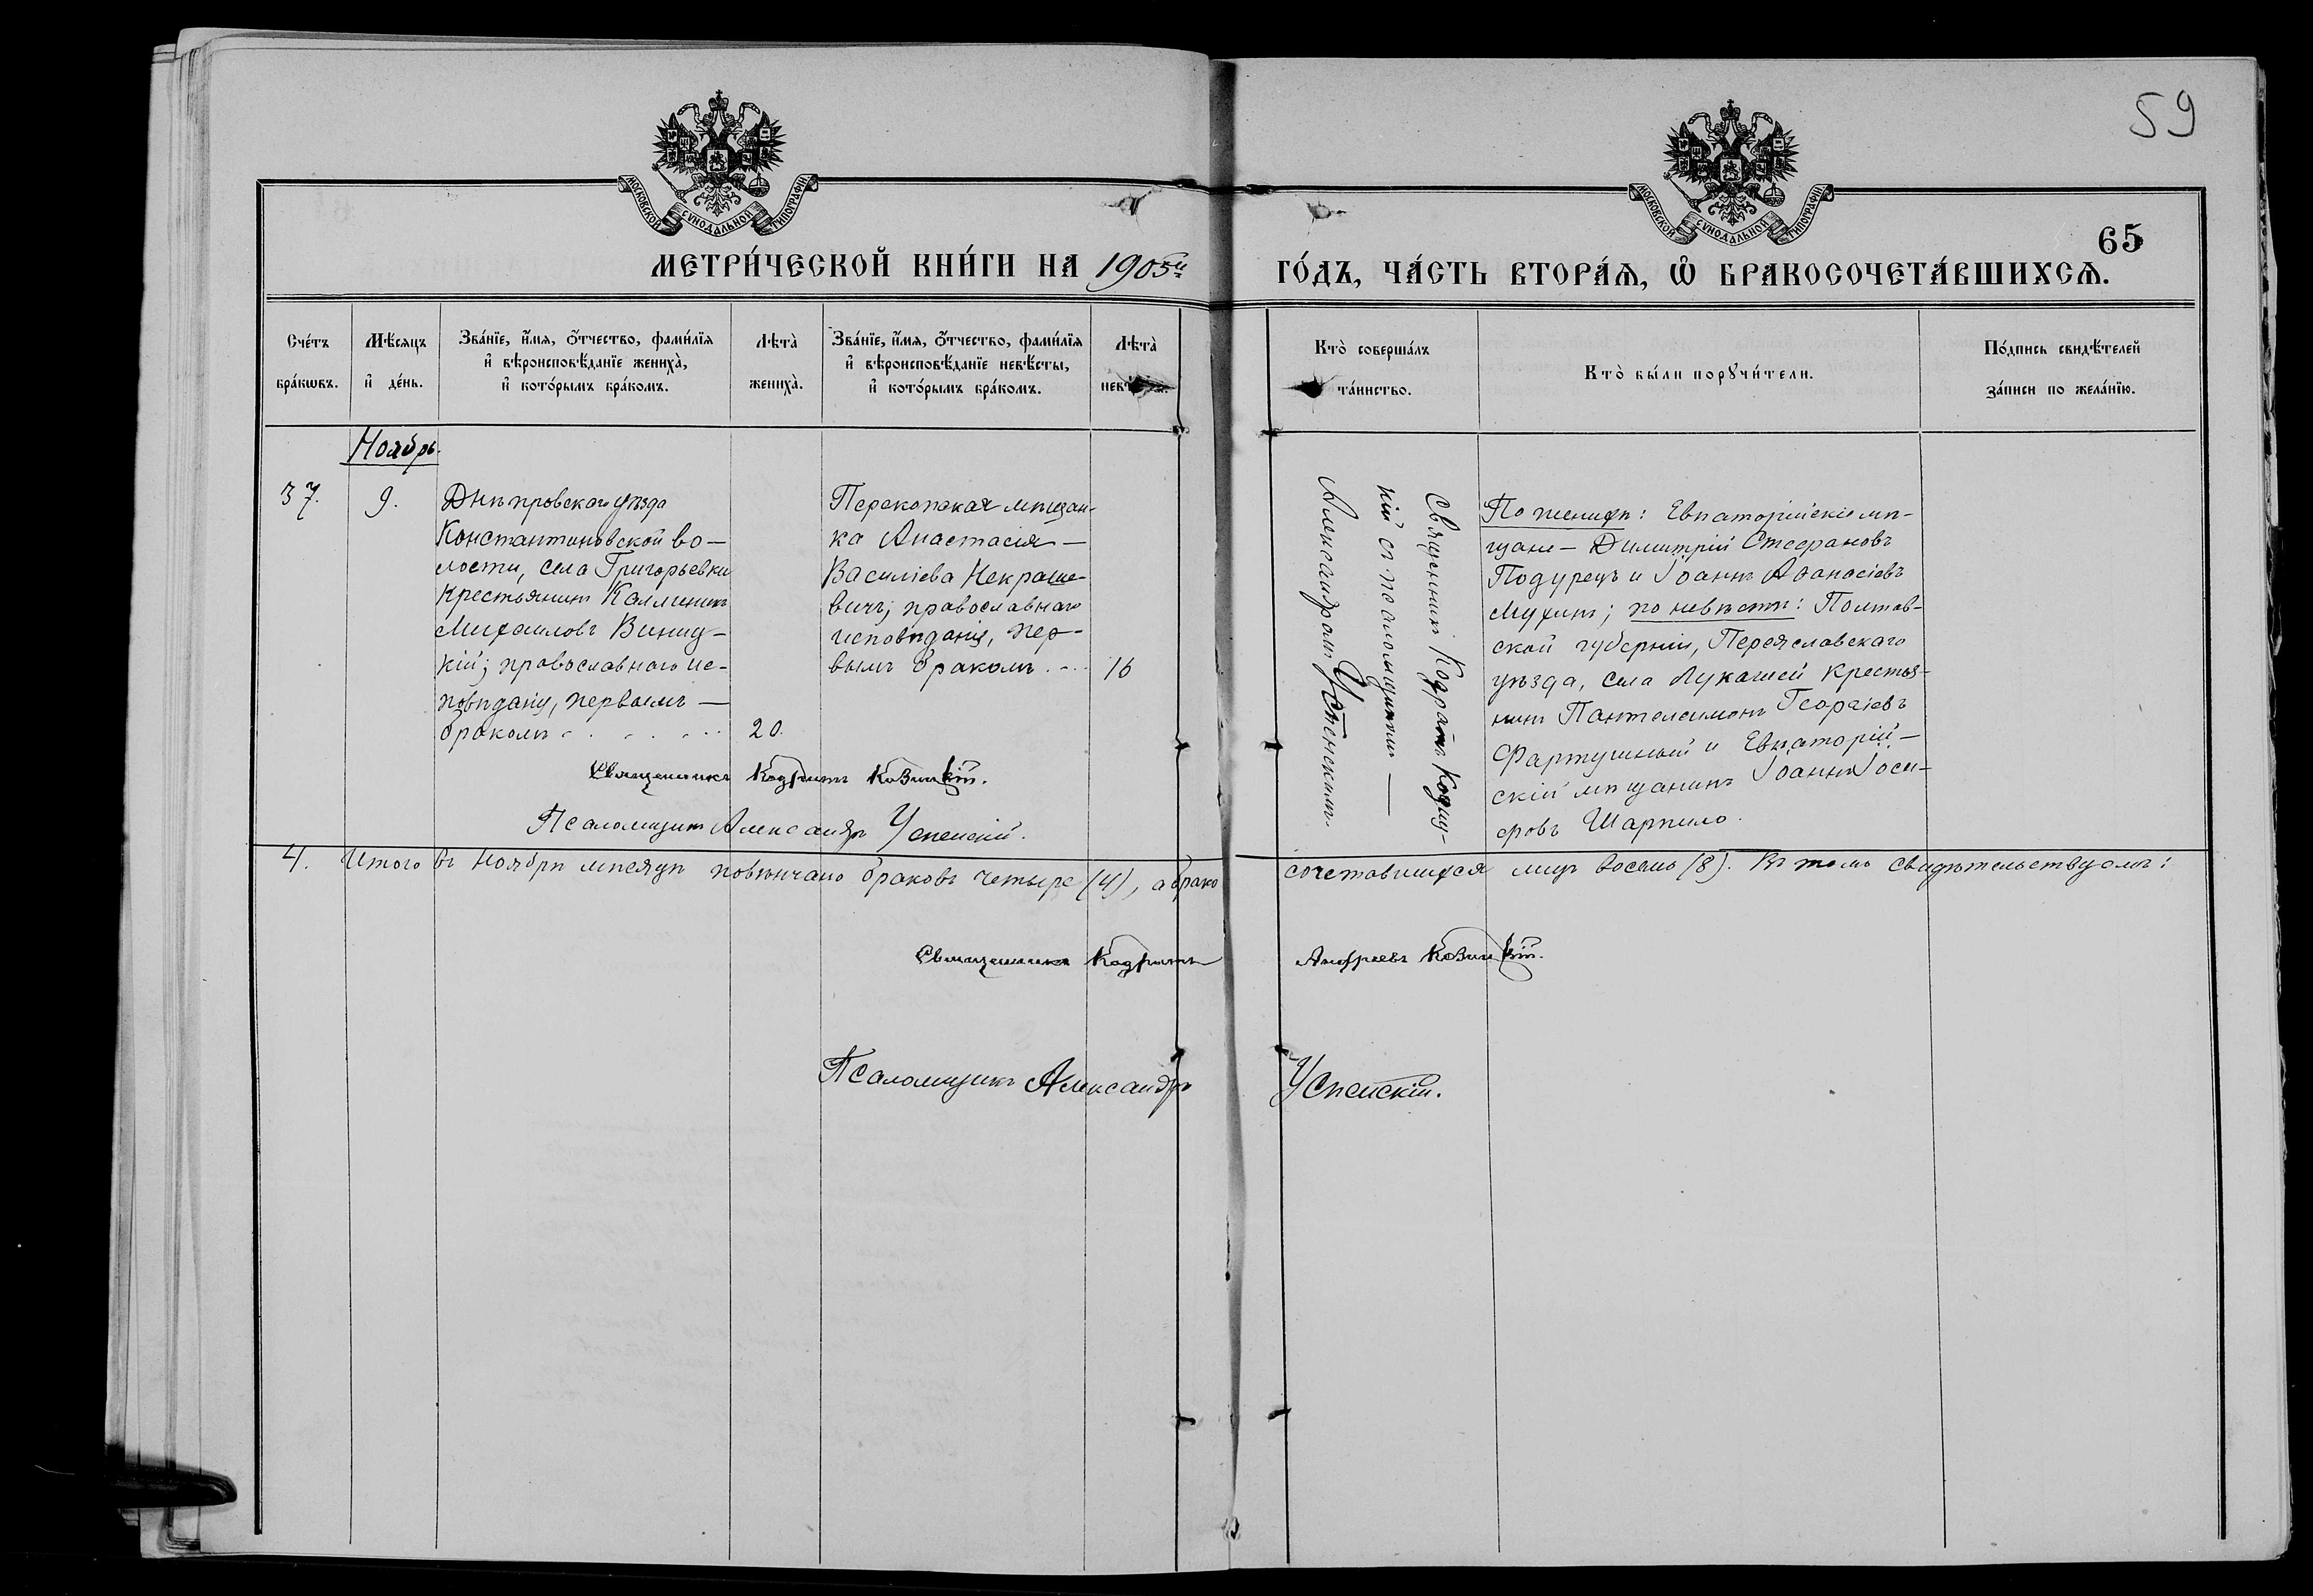 59
МОСКОВСКОЙ СУНОДАЛЬНОЙ ТИПОГРАФІИ
МОСКОВСКОЙ СУНОДАЛЬНОЙ ТИПОГРАФІИ
65
МЕТРИ́ЧЕСКОЙ КНИ́ГИ НА 1905й ГО́ДЪ, ЧА́СТЬ ВТОРА́Я, Ѡ҆ БРАКОСОЧЕТА́ВШИХСѦ.
Сче́тъ
бра́кѡвъ.
Мѣ́сяцъ
и҆ де́нь.
Зва́нїе, и҆́мѧ, ѻ҆́тчество, фами́лїѧ
и҆ вѣроисповѣ́данїе жениха̀,
и҆ кото́рымъ бра́комъ.
Лѣта̀
жениха̀.
Зва́нїе, и҆́мѧ, ѻ҆́тчество, фами́лїѧ
и҆ вѣроисповѣ́данїе невѣ́сты,
и҆ кото́рымъ бра́комъ.
Лѣта̀
Кто̀ соверша́лъ
та́инство.
Кто̀ бы́ли порꙋчи́тели.
По́дпись свидѣ́телей
за́писи по жела́нїю.
Ноябрь.
37.
9.
Днѣпровскаго уѣзда
Константиновской во-
лости, села Григорьевки
крестьянинъ Каллиникъ
Михаиловъ Виниц-
кій; православнаго ис-
повѣданія, первымъ —
бракомъ . . . . . .
20.
Перекопская мѣщан-
ка Анастасія —
Василіева Некраше-
вичъ; православнаго
исповѣданія, пер-
вымъ бракомъ . . .
16
Священникъ Кодратъ Козиц-
кій съ псаломщикомъ —
Александромъ Успенскимъ.
По женихѣ: Евпаторійскіе мѣ-
щане — Димитрій Стефановъ
Подурецъ и Іоаннъ Аѳанасіевъ
Мухинъ; по невѣстѣ: Полтав-
ской губерніи, Переяславскаго
уѣзда, села Лукашей крестья-
нинъ Пантелеимонъ Георгіевъ
Фартушный и Евпаторій-
скій мѣщанинъ Іоаннъ Іоси-
фовъ Шарпило.
Священникъ Кодратъ Козицкій.
Псаломщикъ Александръ Успенскій.
4. Итого въ ноябрѣ мѣсяцѣ повѣнчано браковъ четыре (4), а брако сочетавшихся лицъ восемь (8). Въ томъ свидѣтельствуемъ:
Священникъ Кодратъ Андреевъ Козицкій.
Псаломщикъ Александръ Успенскій.